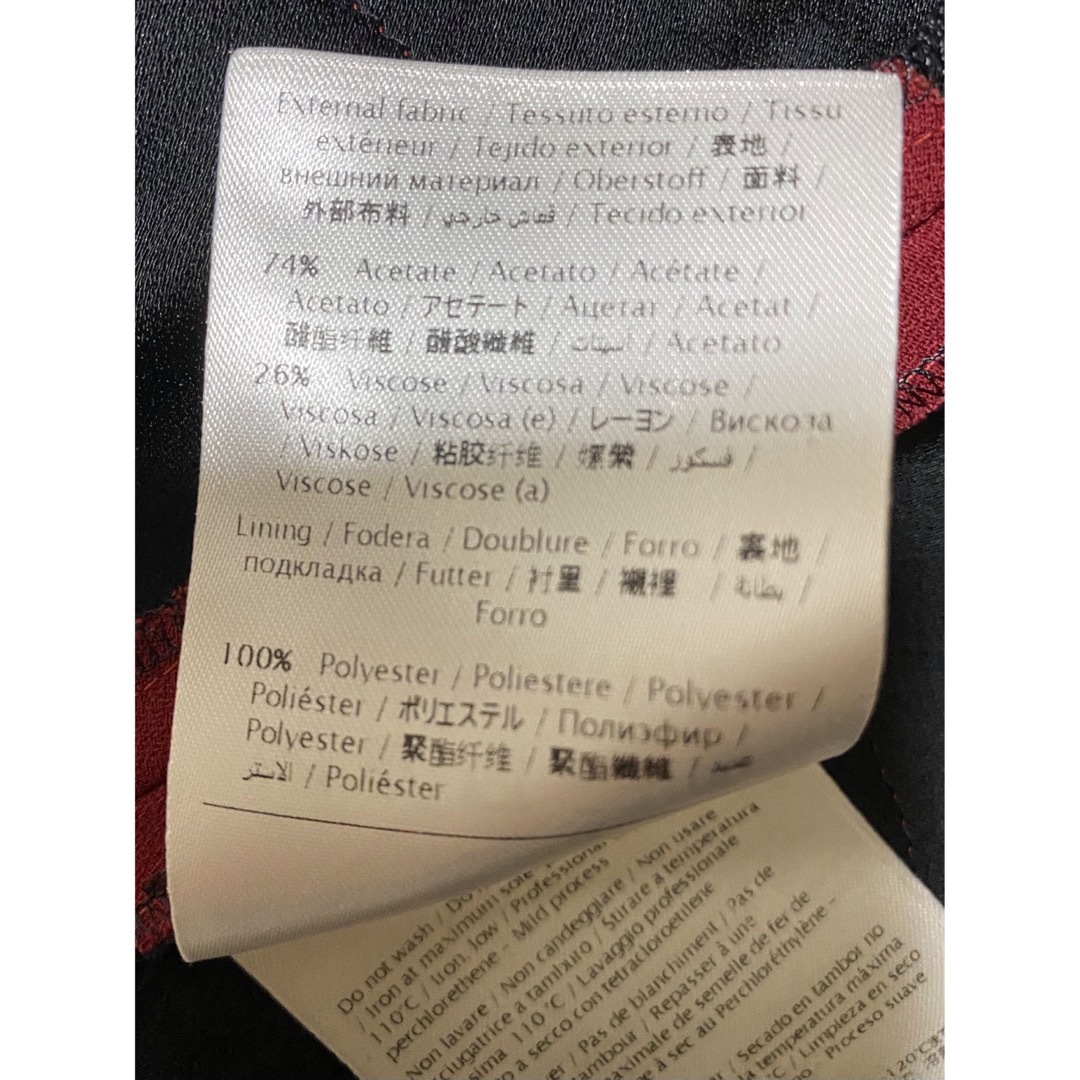 External fabric / Tessuto esterno / Tissu
extérieur / Tejido exterior / 表地 /
внешний материал / Oberstoff / 面料 /
外部布料 / قماش خارجي / Tecido exterior
74% Acetate / Acetato / Acétate /
Acetato / アセテート / Ацетат / Acetat /
醋酯纤維 / 醋酸纖維 / أسيتات / Acetato
26% Viscose / Viscosa / Viscose /
Viscosa / Viscosa (e) / レーヨン / Вискоза
/ Viskose / 粘胶纤维 / 嫘縈 / فسكوز /
Viscose / Viscose (a)
Lining / Fodera / Doublure / Forro / 裏地 /
подкладка / Futter / 衬里 / 襯裡 / بطانة /
Forro
100% Polyester / Poliestere / Polyester /
Poliéster / ポリエステル / Полиэфир /
Polyester / 聚酯纤维 / 聚酯纖維 /
الاستر / Poliéster
Do not wash /
/ Iron at maximum sole
110°C / Iron, low / Professional
perchlorethene - Mild process
Non lavare / Non candeggiare / Non usare
asciugatrice a tamburo / Stirare a temperatura
110 °C / Lavaggio professionale
a secco con tetracloroetilene
/ Pas de blanchiment / Pas de
tambour / Repasser à une
maximale de semelle de fer de
à sec au Perchloréthylène -
/ Secado en tambor no
temperatura máxima
/ Limpieza en seco
Proceso suave